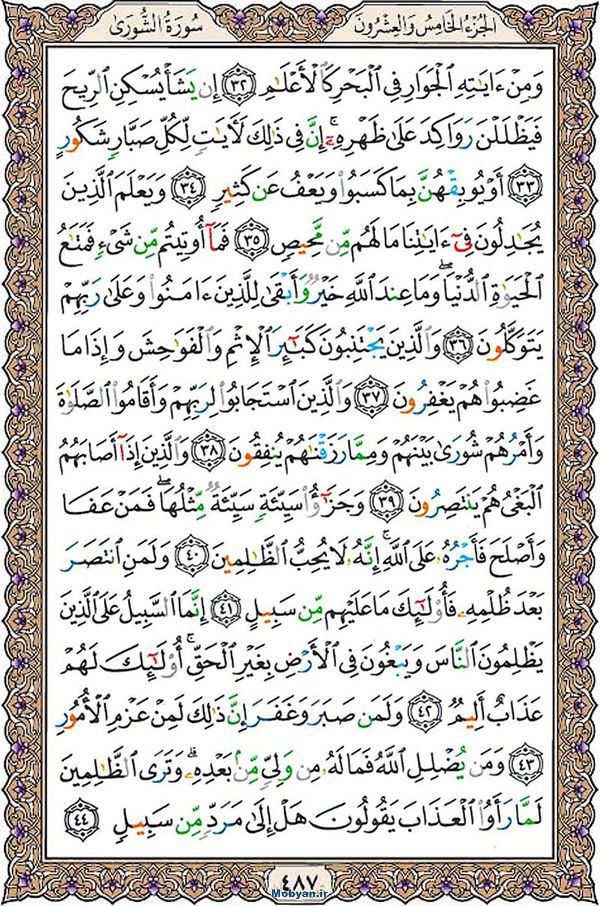 الجزء الخامس والعشرون سورة الشورى
وَمِنْ ءَايَـٰتِهِ ٱلْجَوَارِ فِى ٱلْبَحْرِ كَٱلْأَعْلَـٰمِ ٣٢ إِن يَشَأْ يُسْكِنِ ٱلرِّيحَ
فَيَظْلَلْنَ رَوَاكِدَ عَلَىٰ ظَهْرِهِۦٓ ۚ إِنَّ فِى ذَٰلِكَ لَـَٔايَـٰتٍ لِّكُلِّ صَبَّارٍ شَكُورٍ
٣٣ أَوْ يُوبِقْهُنَّ بِمَا كَسَبُوا۟ وَيَعْفُ عَن كَثِيرٍ ٣٤ وَيَعْلَمَ ٱلَّذِينَ
يُجَـٰدِلُونَ فِىٓ ءَايَـٰتِنَا مَا لَهُم مِّن مَّحِيصٍ ٣٥ فَمَآ أُوتِيتُم مِّن شَىْءٍ فَمَتَـٰعُ
ٱلْحَيَوٰةِ ٱلدُّنْيَا ۖ وَمَا عِندَ ٱللَّهِ خَيْرٌ وَأَبْقَىٰ لِلَّذِينَ ءَامَنُوا۟ وَعَلَىٰ رَبِّهِمْ
يَتَوَكَّلُونَ ٣٦ وَٱلَّذِينَ يَجْتَنِبُونَ كَبَـٰٓئِرَ ٱلْإِثْمِ وَٱلْفَوَٰحِشَ وَإِذَا مَا
غَضِبُوا۟ هُمْ يَغْفِرُونَ ٣٧ وَٱلَّذِينَ ٱسْتَجَابُوا۟ لِرَبِّهِمْ وَأَقَامُوا۟ ٱلصَّلَوٰةَ
وَأَمْرُهُمْ شُورَىٰ بَيْنَهُمْ وَمِمَّا رَزَقْنَـٰهُمْ يُنفِقُونَ ٣٨ وَٱلَّذِينَ إِذَآ أَصَابَهُمُ
ٱلْبَغْىُ هُمْ يَنتَصِرُونَ ٣٩ وَجَزَٰٓؤُا۟ سَيِّئَةٍ سَيِّئَةٌ مِّثْلُهَا ۖ فَمَنْ عَفَا
وَأَصْلَحَ فَأَجْرُهُۥ عَلَى ٱللَّهِ ۚ إِنَّهُۥ لَا يُحِبُّ ٱلظَّـٰلِمِينَ ٤٠ وَلَمَنِ ٱنتَصَرَ
بَعْدَ ظُلْمِهِۦ فَأُو۟لَـٰٓئِكَ مَا عَلَيْهِم مِّن سَبِيلٍ ٤١ إِنَّمَا ٱلسَّبِيلُ عَلَى ٱلَّذِينَ
يَظْلِمُونَ ٱلنَّاسَ وَيَبْغُونَ فِى ٱلْأَرْضِ بِغَيْرِ ٱلْحَقِّ ۚ أُو۟لَـٰٓئِكَ لَهُمْ
عَذَابٌ أَلِيمٌ ٤٢ وَلَمَن صَبَرَ وَغَفَرَ إِنَّ ذَٰلِكَ لَمِنْ عَزْمِ ٱلْأُمُورِ
٤٣ وَمَن يُضْلِلِ ٱللَّهُ فَمَا لَهُۥ مِن وَلِىٍّ مِّنۢ بَعْدِهِۦ ۗ وَتَرَى ٱلظَّـٰلِمِينَ
لَمَّا رَأَوُا۟ ٱلْعَذَابَ يَقُولُونَ هَلْ إِلَىٰ مَرَدٍّ مِّن سَبِيلٍ ٤٤
٤٨٧
Mobyan.ir